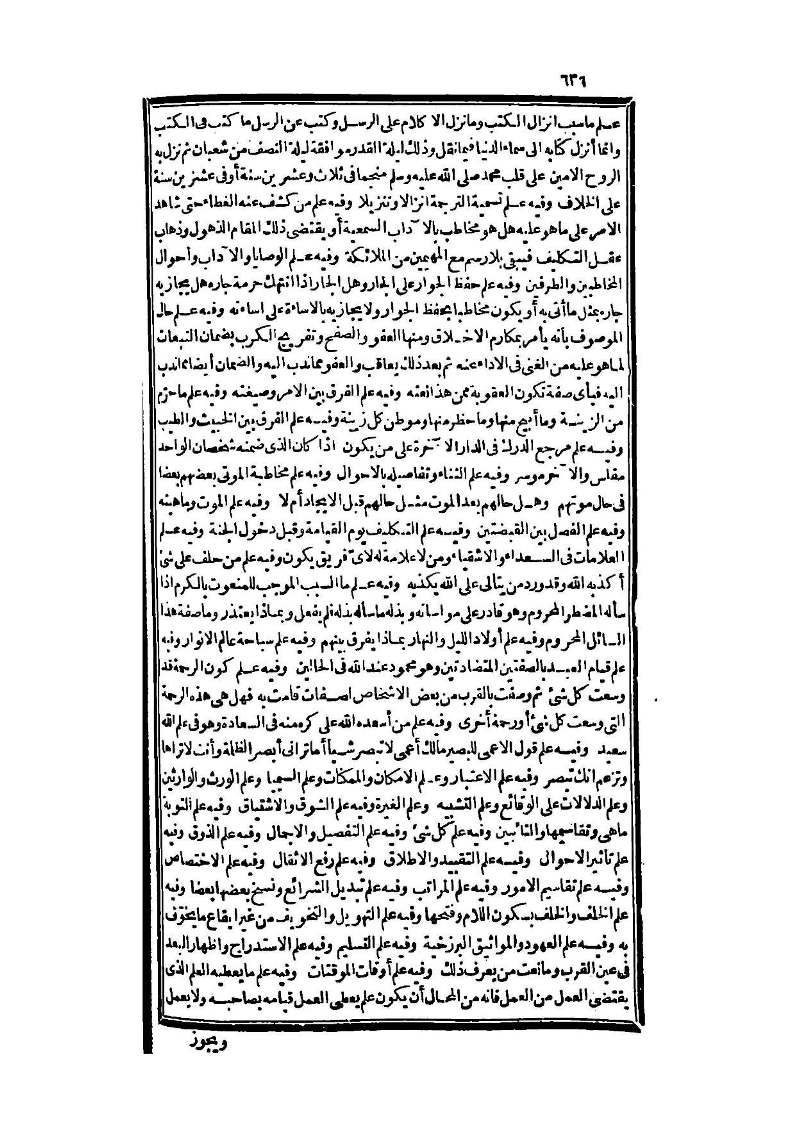 ٦٣٦
علم ما سبب انزال الكتب وما نزل الا كلام على الرسل وكتب عن الرسل ما كتب فى الكتب
وانما أنزل كتابه الى سماء الدنيا فيما نقل وذلك ليلة القدر موافقة ليلة النصف من شعبان ثم نزل به
الروح الامين على قلب محمد صلى الله عليه وسلم منجما فى ثلاث وعشرين سنة أو فى عشرين سنة
على الخلاف وفيه علم تسمية الترجمة انزالا وتنزيلا وفيه علم من كشف عنه الغطاء حتى شاهد
الامر على ما هو عليه هل هو مخاطب بالآداب السمعية أو يقتضى ذلك المقام الذهول وذهاب
عقل التكليف فيبقى بلا رسم مع المهيمين من الملائكة وفيه علم الوصايا والآداب وأحوال
المخاطبين والطرفين وفيه علم حفظ الجوار على الجار وهل الجار اذا انتهك حرمة جاره هل يجازيه
جاره بمثل ما أتى به أو يكون مخاطبا بحفظ الجوار ولا يجازيه بالاساءة على اساءته وفيه علم حال
الموصوف بأنه يأمر بمكارم الاخلاق ومنها العفو والصفح وتفريج الكرب بضمان التبعات
لما هو عليه من الغنى فى الاداء عنه ثم بعد ذلك يعاقب والعفو مما ندب اليه والضمان أيضا مما ندب
اليه فبأى صفة تكون العقوبة ممن هذا نعته وفيه علم الفرق بين الامر وصيغته وفيه علم ما حرم
من الزينة وما أبيح منها وما حظر منها وموطن كل زينة وفيه علم الفرق بين الخبيث والطيب
وفيه علم مرجع الدرك فى الدار الآخرة على من يكون اذا كان الذى ضمنه شخصان الواحد
مفلس والآخر موسر وفيه علم الثناء وتفاصيله بالاحوال وفيه علم مخاطبة الموتى بعضهم بعضا
فى حال موتهم وهل حالهم بعد الموت مثل حالهم قبل الايجاد أم لا وفيه علم الموت وماهيته
وفيه علم الفصل بين القبضتين وفيه علم التكليف يوم القيامة وقبل دخول الجنة وفيه علم
العلامات فى السعداء والاشقياء ومن لا علامة له لاى فريق يكون وفيه علم من حلف على شئ
أكذبه الله وقد ورد من يتألى على الله يكذبه وفيه علم ما السبب الموجب للمنعوت بالكرم اذا
سأله المضطر المحروم وهو قادر على مواساته وبذله ما سأله بذله فلم يفعل وبماذا يعتذر وما صفة هذا
السائل المحروم وفيه علم أولاد الليل والنهار بماذا يفرق بينهم وفيه علم سباحة عالم الانوار وفيه
علم قيام العبد بالصفتين المتضادتين وهو محمود عند الله فى الحالين وفيه علم كون الرحمة قد
وسعت كل شئ ثم وصفت بالقرب من بعض الاشخاص لصفات قامت به فهل هى هذه الرحمة
التى وسعت كل شئ أو رحمة أخرى وفيه علم من أسعده الله على كره منه فى السعادة وهو فى علم الله
سعيد وفيه علم قول الاعمى للبصير مالك أعمى لا تبصر شيأ أما ترانى أبصر الظلمة وأنت لا تراها
وتزعم انك تبصر وفيه علم الاعتبار وعلم الامكان والممكنات وعلم السيميا وعلم الورث والوارثين
وعلم الدلالات على الوقائع وعلم التشبيه وعلم الغيرة وفيه علم الشوق والاشتياق وفيه علم التوبة
ما هى وتقاسيمها والتائبين وفيه علم كل شئ وفيه علم التفصيل والاجمال وفيه علم الذوق وفيه
علم تأثير الاحوال وفيه علم التقييد والاطلاق وفيه علم رفع الاثقال وفيه علم الاختصاص
وفيه علم تقاسيم الامور وفيه علم المراتب وفيه علم تبديل الشرائع ونسخ بعضها بعضا وفيه
علم الخلف والخلف بسكون اللام وفتحها وفيه علم التهويل والتخويف من غير ايقاع ما يخوف
به وفيه علم العهود والمواثيق البرزخية وفيه علم التسليم وفيه علم الاستدراج واظهار البعد
فى عين القرب وما نعت من يعرف ذلك وفيه علم أوقات الموقتات وفيه علم ما يعطيه العلم الذى
يقتضى العمل من العمل فانه من المحال أن يكون علم يعطى العمل قيامه بصاحبه ولا يعمل
ويجوز